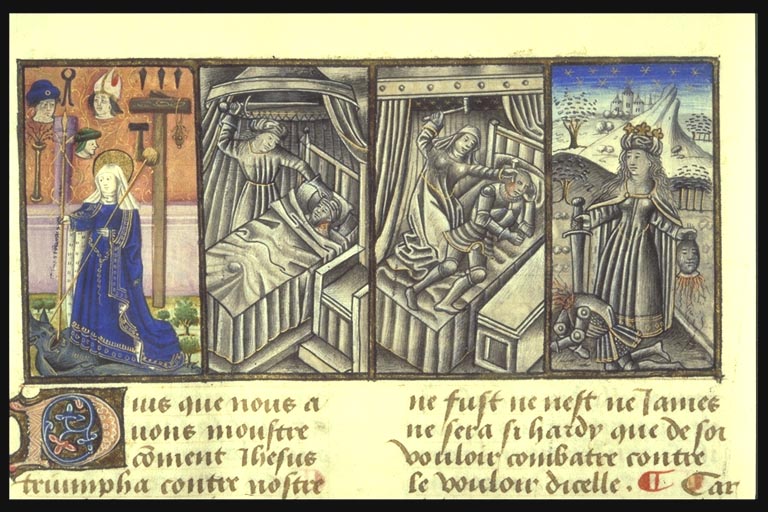 Puis que nous a
uons monstre
cõment Ihesus
triumpha contre nostre
ne fust ne nest ne James
ne sera si hardy que de soi
vouloir combatre contre
le vouloir dicelle. Car